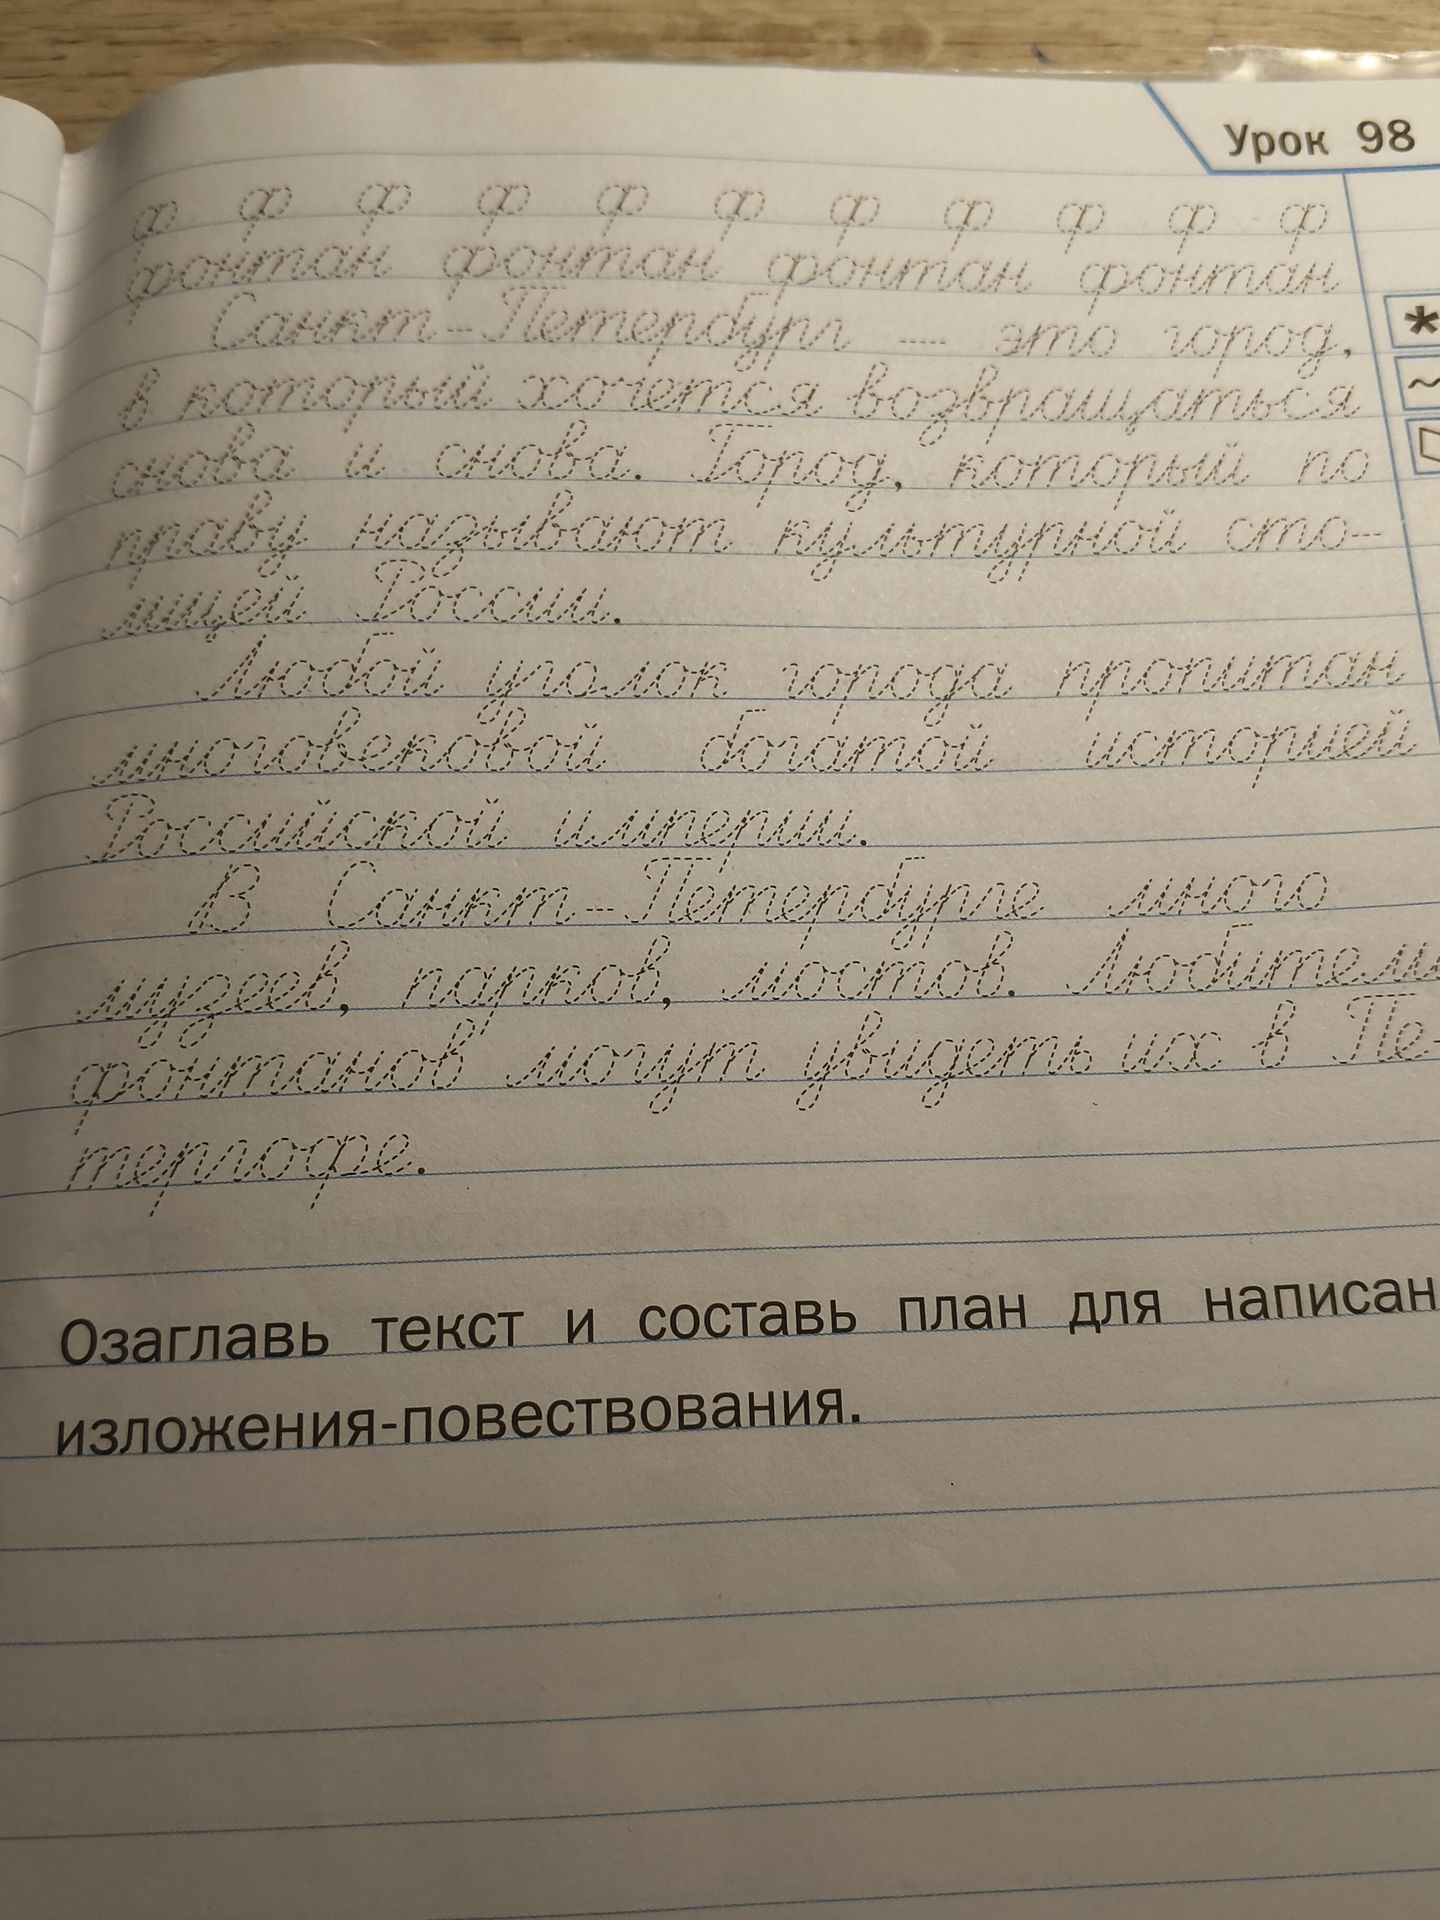 Урок 98
ф ф ф ф ф ф ф ф ф ф ф
фонтан фонтан фонтан фонтан
Санкт-Петербург — это город,
в который хочется возвращаться
снова и снова. Город, который по
праву называют культурной сто-
лицей России.
Любой уголок города пропитан
многовековой богатой историей
Российской империи.
В Санкт-Петербурге много
музеев, парков, мостов. Любители
фонтанов могут увидеть их в Пе-
тергофе.
Озаглавь текст и составь план для написан
изложения-повествования.